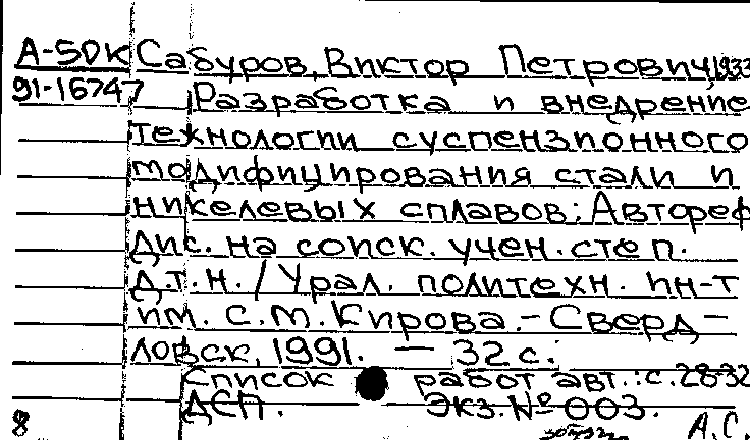 А-50К Сабуров, Виктор Петрович, 1933
91-16747
Разработка и внедрение
технологии суспензионного
модифицирования стали и
никелевых сплавов: Автореф
дис. на соиск. учен. степ.
д.т.н. / Урал. политехн. ин-т
им. С.М. Кирова. - Сверд-
ловск, 1991. — 32 с.
Список работ авт.: с. 28-32
ДСП. Экз. № 003.
8 А.С.